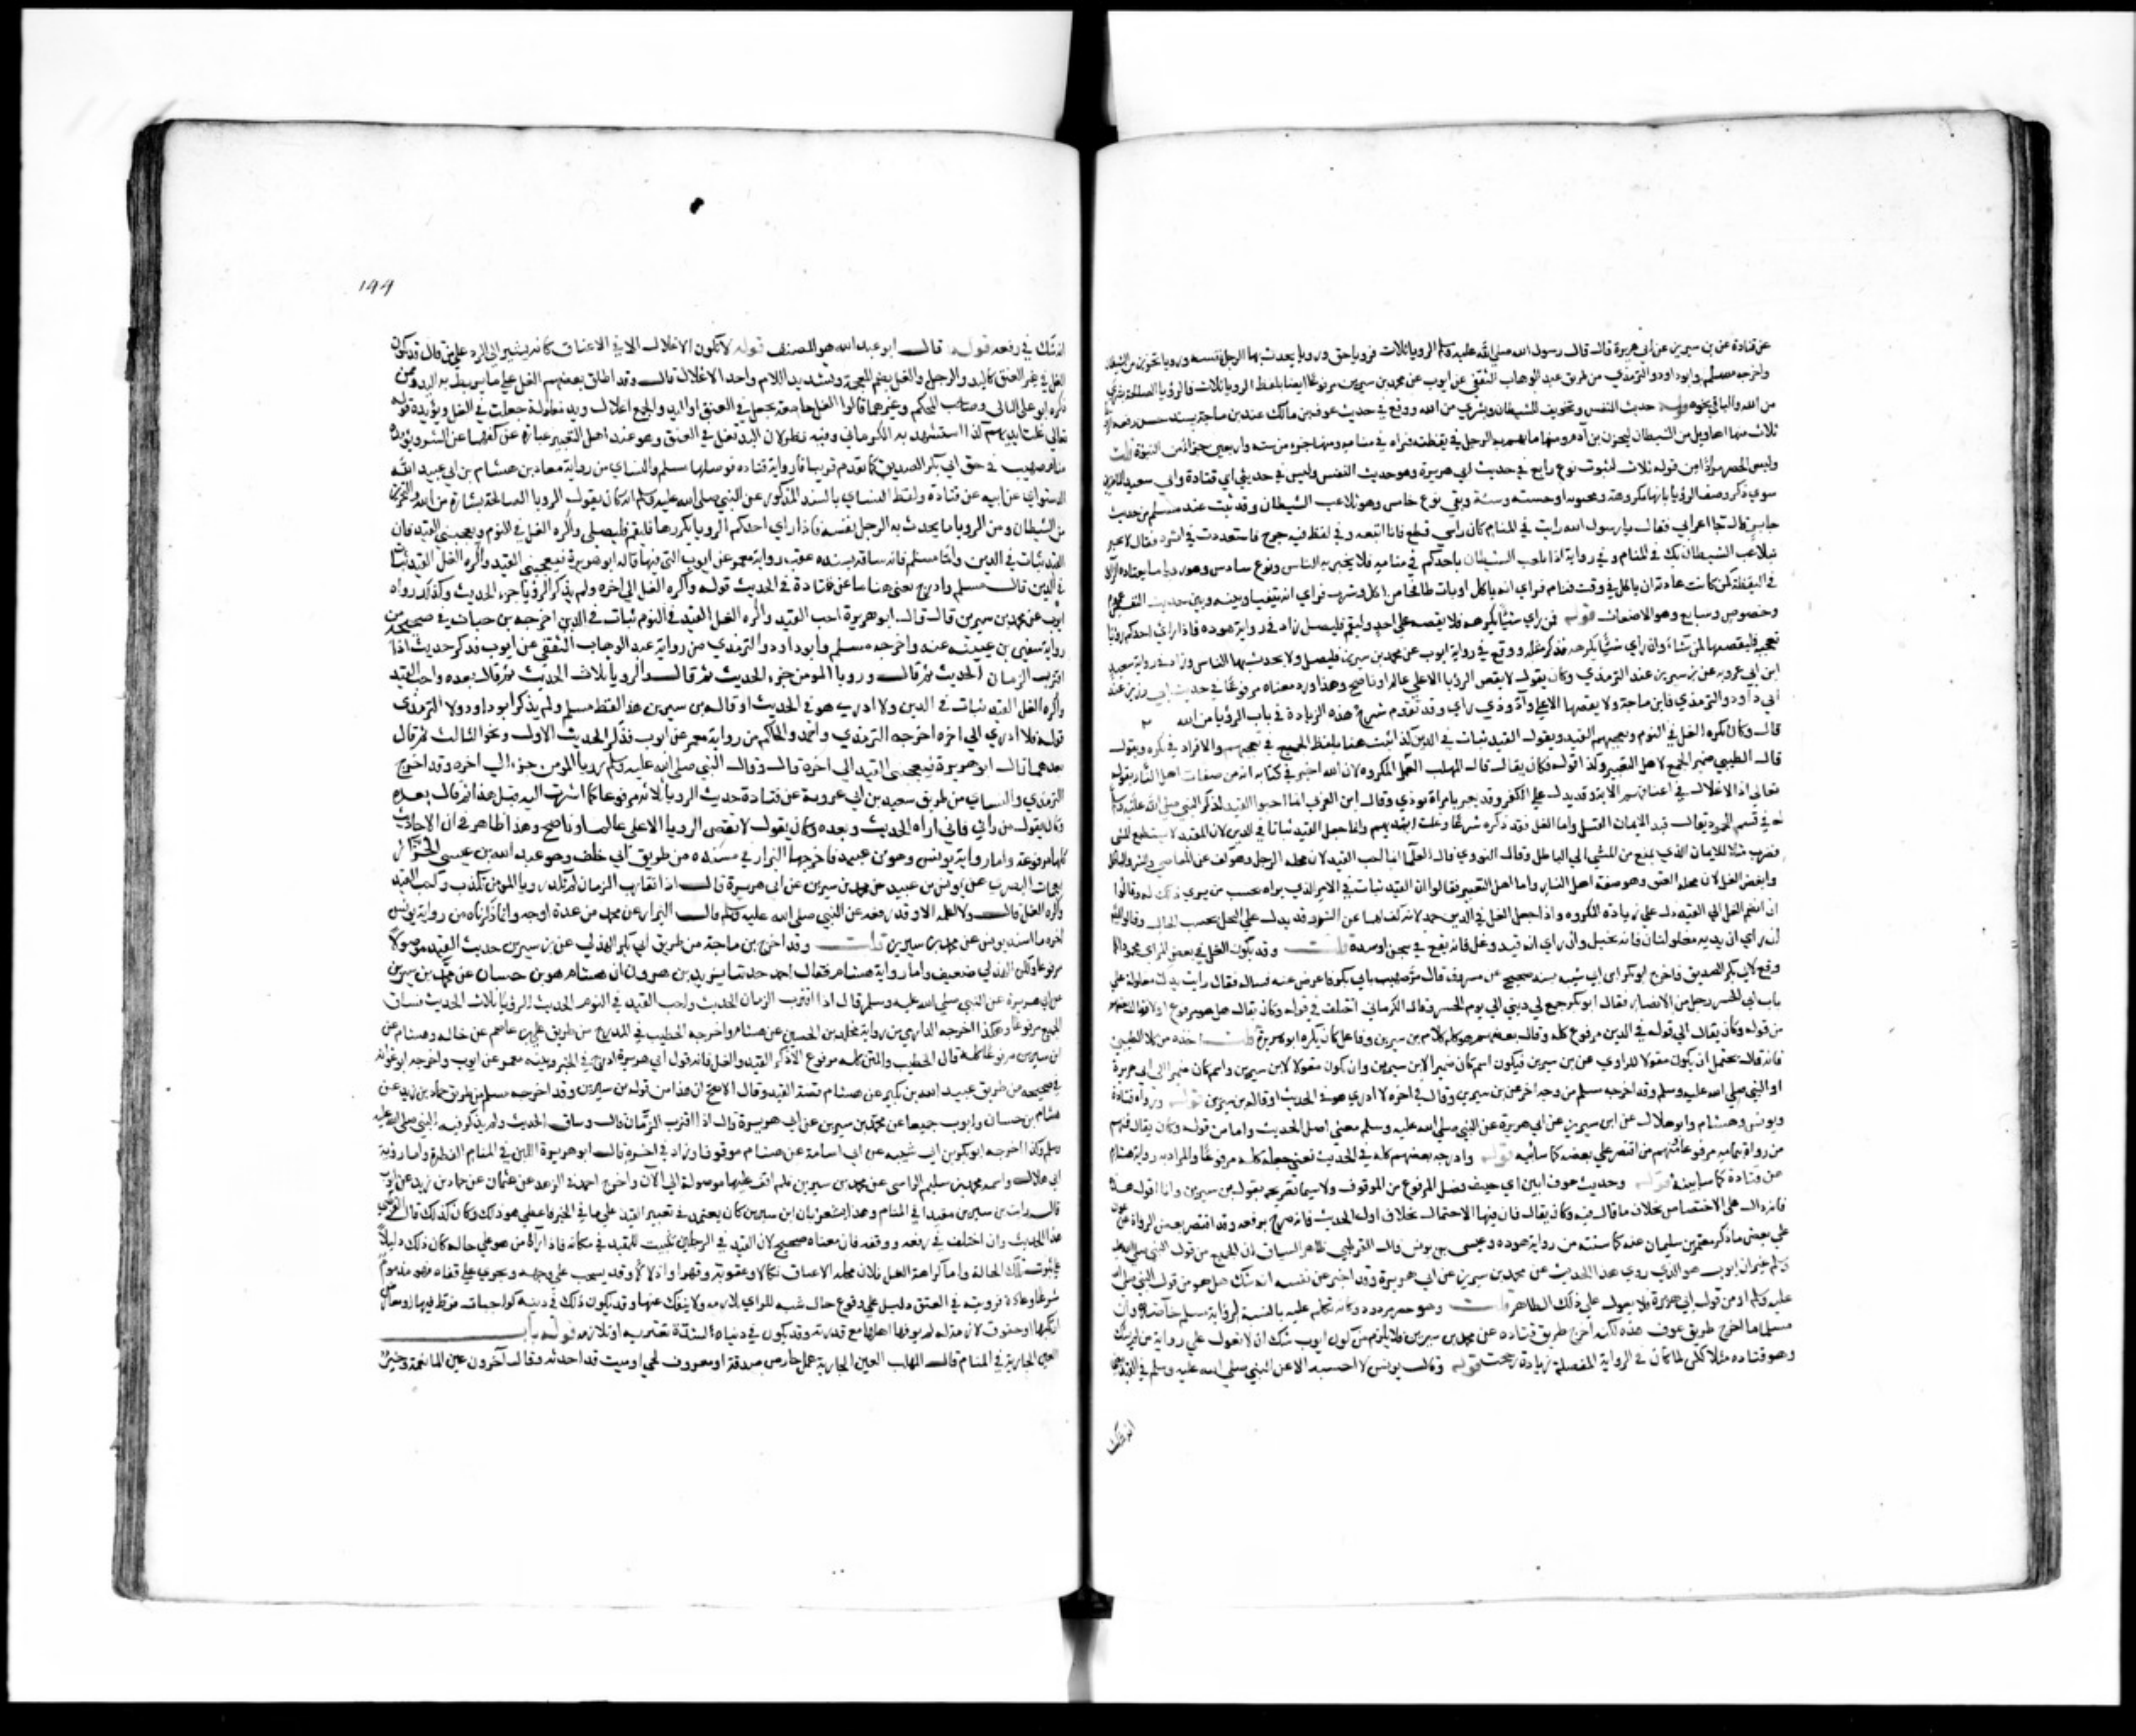 عن قتادة عن بن سيرين عن ابي هريرة قال قال رسول الله صلي الله عليه وسلم الرويا ثلاث فرويا حق ورويا يحدث بها الرجل نفسه ورويا تحزين من الشيطان
واخرجه مسلم وابو داود والترمذي من طريق عبد الوهاب الثقفي عن ايوب عن محمد بن سيرين مرفوعا ايضا بلفظ الرويا ثلاث فالرؤيا الصالحة بشري
من الله والباقي نحوه قوله حديث النفس وتخويف الشيطان وبشري من الله ووقع في حديث عوف بن مالك عند بن ماجة بسند حسن رفعه الرؤيا
ثلاث منها اهاويل من الشيطان ليحزن بن آدم ومنها ما يهم به الرجل في يقظته فيراه في منامه ومنها جزء من ستة واربعين جزءا من النبوة قلت
وليس الحصر مرادا من قوله ثلاث لثبوت نوع رابع في حديث ابي هريرة وهو حديث النفس وليس في حديثي ابي قتادة وابي سعيد الماضيين
سوي ذكر وصف الرؤيا بانها مكروهة ومحبوبة او حسنة وسيئة وبقي نوع خامس وهو تلاعب الشيطان وقد ثبت عند مسلم من حديث
جابر قال جا اعرابي فقال يا رسول الله رايت في المنام كان راسي قطع فانا اتبعه وفي لفظ فيه خرج فاشتددت في اثره فقال لا تخبر
بتلاعب الشيطان بك في المنام وفي رواية اذا لعب الشيطان باحدكم في منامه فلا يخبر به الناس ونوع سادس وهو رويا ما يعتاده الرائي
في اليقظة كمن كانت عادته ان ياكل في وقت فنام فراي انه ياكل او بات طافحا من اكل وشرب فراي انه يتقيا وبينه وبين حديث النفس عموم
وخصوص وسابع وهو الاضغاث قوله فمن راي شيئا يكرهه فلا يقصه علي احد وليقم فليصل زاد في رواية هوده فاذا راي احدكم رؤيا
تعجبه فليقصها لمن شاء وان راي شيئا يكرهه فذكر مثله ووقع في رواية ايوب عن محمد بن سيرين فليصل ولا يحدث بها الناس وزاد في رواية سعيد
ابن ابي عروبة عن بن سيرين عند الترمذي وكان يقول لا يقص الرؤيا الا علي عالم او ناصح وهذا ورد معناه مرفوعا في حديث ابي رزين عند
ابي داود والترمذي وابن ماجة ولا يقصها الا علي واد او ذي راي وقد تقدم شرح هذه الزيادة في باب الرؤيا من الله
قال وكان يكره الغل في النوم ويعجبهم القيد ويقول القيد ثبات في الدين كذا ثبت هنا بلفظ الجمع في يعجبهم والافراد في يكره ويقول
قال الطيبي ضمير الجمع لاهل التعبير وكذا قوله فكان يقال قال المهلب الغل المكروه لان الله اخبر في كتابه انه من صفات اهل النار بقوله
تعالي اذ الاغلال في اعناقهم الاية وقد يدل علي الكفر وقد يعبر بامراة توذي وقال ابن العربي انما احبوا القيد لذكر النبي صلي الله عليه وسلم
له في قسم المحمود فقال قيد الايمان الفتك واما الغل فقد ذكره شرعا وغلت ايديهم وانما جعل القيد ثباتا في الدين لان المقيد لا يستطيع المشي
فضرب مثلا للايمان الذي يمنع من المشي الي الباطل وقال النووي قال العلما انما احب القيد لان محله الرجل وهو كف عن المعاصي والشر والباطل
وابغض الغل لان محله العنق وهو صفة اهل النار واما اهل التعبير فقالوا ان القيد ثبات في الامر الذي يراه بحسب من يري ذلك له وقالوا
ان انضم الغل الي القيد دل علي زيادة المكروه واذا جعل الغل في اليدين حمد لانه كف لهما عن الشر وقد يدل علي البخل بحسب الحال وقالوا
ان راي ان يديه مغلولتان فانه بخيل وان راي انه قيد وغل فانه يقع في سجن او شدة قلت وقد يكون الغل في بعض المرائي محمودا كما
وقع لابي بكر الصديق فاخرج ابو بكر ابن ابي شيبه بسند صحيح عن مسروق قال مر صهيب بابي بكر فاعرض عنه فساله فقال رايت يدك مغلولة علي
باب ابي الحشر رجل من الانصار فقال ابو بكر جمع لي ديني الي يوم الحشر وقال الكرماني اختلف في قوله وكان يقال هل هو مرفوع او لا فقال بعضهم
من قوله وكان يقال الي قوله في الدين مرفوع كله وقال بعضهم هو كله كلام بن سيرين وفاعل كان يكره ابو هريرة قلت اخذه من كلام الطيبي
فانه قال يحتمل ان يكون مقولا للراوي عن بن سيرين فيكون اسم كان ضميرا لابن سيرين وان يكون مقولا لابن سيرين واسم كان ضميرا لابي هريرة
او النبي صلي الله عليه وسلم وقد اخرجه مسلم من وجه اخر عن بن سيرين وقال في اخره لا ادري هو في الحديث او قاله بن سيرين قوله ورواه قتادة
ويونس وهشام وابو هلال عن ابن سيرين عن ابي هريرة عن النبي صلي الله عليه وسلم يعني اصل الحديث واما من قوله وكان يقال فمنهم
من رواه بتمامه مرفوعا ومنهم من اقتصر علي بعضه كما سابينه قوله وادرجه بعضهم كله في الحديث يعني جعله كله مرفوعا والمراد به رواية هشام
عن قتادة كما سابينه قوله وحديث عوف ابين اي حيث فصل المرفوع من الموقوف ولا سيما تصريحه بقول بن سيرين وانا اقول هذه
فانه دال علي الاختصاص بخلاف ما قال فيه وكان يقال فان فيها الاحتمال بخلاف اول الحديث فانه صرح برفعه وقد اقتصر بعض الرواة عن عوف
علي بعض ما ذكر معتمر بن سليمان عنه كما سنبينه من رواية هوده وعيسي بن يونس قال القرطبي ظاهر السياق ان الجميع من قول النبي صلي الله عليه
وسلم غير ان ايوب هو الذي روي هذا الحديث عن محمد بن سيرين عن ابي هريرة وقد اخبر عن نفسه انه شك هل هو من قول النبي صلي الله
عليه وسلم او من قول ابي هريرة فلا يعول علي ذلك الظاهر قلت وهو حصر مردود وكانه تكلم عليه بالنسبة لرواية مسلم خاصة وان
مسلما ما اخرج طريق عوف هذه لكنه اخرج طريق قتاده عن محمد بن سيرين فلا يلزم من كون ايوب شك ان لا نعول علي رواية من لم يشك
وهو قتاده مثلا لكن لما كان في الرواية المفصلة زيادة رجحت قوله وقال يونس لا احسبه الا عن النبي صلي الله عليه وسلم في القيد يعني
انه شك
١٩٩
انه شك في رفعه قوله قال ابو عبد الله هو المصنف قوله لا تكون الاغلال الا في الاعناق كانه يشير الي الرد علي من قال قد يكون
الغل في غير العنق كاليد والرجل والغل بضم المعجمة وتشديد اللام واحد الاغلال قال وقد اطلق بعضهم الغل علي ما يربط به اليد وممن
ذكره ابو علي القالي وصاحب المحكم وغيرهما قالوا الغل جامعة يجعل في العنق او اليد والجمع اغلال ويد مغلولة جعلت في الغل ويؤيده قوله
تعالي غلت ايديهم كذا استشهد به الكرماني وفيه نظر لان اليد تغل في العنق وهو عند اهل التعبير عبارة عن كفها عن الشر ويؤيده
منام صهيب في حق ابي بكر الصديق كما تقدم قريبا فاما رواية قتاده فوصلها مسلم والنساي من رواية معاذ بن هشام بن ابي عبد الله
الدستواي عن ابيه عن قتادة ولفظ النساي بالسند المذكور عن النبي صلي الله عليه وسلم انه كان يقول الرويا الصالحة بشارة من الله والتحزين
من الشيطان ومن الرويا ما يحدث به الرجل نفسه فاذا راي احدكم الرويا يكرهها فليقم فليصلي واكره الغل في النوم ويعجبني القيد فان
القيد ثبات في الدين واما مسلم فانه ساقه بسنده عقب رواية معمر عن ايوب التي فيها قال ابو هريرة فيعجبني القيد واكره الغل القيد ثبات
في الدين قال مسلم وادرج يعني هشاما عن قتادة في الحديث قوله واكره الغل الي اخره ولم يذكر الرؤيا جزء الحديث وكذلك رواه
ايوب عن محمد بن سيرين قال قال ابو هريرة احب القيد واكره الغل القيد في النوم ثبات في الدين اخرجه بن حبان في صحيحه من
رواية سفين بن عيينه عنه واخرجه مسلم وابو داود والترمذي من رواية عبد الوهاب الثقفي عن ايوب فذكر حديث اذا
اقترب الزمان الحديث ثم قال ورويا المومن جزء الحديث ثم قال والرويا ثلاث الحديث ثم قال بعده واحب القيد
واكره الغل القيد ثبات في الدين ولا ادري هو في الحديث او قاله بن سيرين هذا لفظ مسلم ولم يذكر ابو داود ولا الترمذي
قوله فلا ادري الي اخره اخرجه الترمذي واحمد والحاكم من رواية معمر عن ايوب فذكر الحديث الاول ونحو الثالث ثم قال
بعدهما قال ابو هريرة فيعجبني القيد الي اخره قال وقال النبي صلي الله عليه وسلم رويا المومن جزء الي اخره وقد اخرج
الترمذي والنساي من طريق سعيد بن ابي عروبة عن قتادة حديث الرويا ثلاث مرفوعا كما اشرت اليه قبل هذا ثم قال بعده
وكان يقول من راني فاني انا هو الحديث وبعده وكان يقول لا تقص الرويا الا علي عالم او ناصح وهذا ظاهر في ان الاحاديث
كلها مرفوعة واما رواية يونس وهو بن عبيد فاخرجها البزار في مسنده من طريق ابي خلف وهو عبد الله بن عيسي الخزاز
البصري عن يونس بن عبيد عن محمد بن سيرين عن ابي هريرة قال اذا تقارب الزمان لم تكد رويا المومن تكذب واحب القيد
واكره الغل قال ولا اعلمه الا وقد رفعه عن النبي صلي الله عليه وسلم قال البزار روي عن محمد من عدة اوجه وانما ذكرناه من رواية يونس
لعزة ما اسند يونس عن محمد بن سيرين قلت وقد اخرج بن ماجة من طريق ابي بكر الهذلي عن بن سيرين حديث القيد موصولا
مرفوعا ولكن الهذلي ضعيف واما رواية هشام فقال احمد حدثنا يزيد بن هرون انا هشام هو بن حسان عن محمد بن سيرين
عن ابي هريرة عن النبي صلي الله عليه وسلم قال اذا اقترب الزمان الحديث واحب القيد في النوم الحديث والرؤيا ثلاث الحديث فساق
الجميع مرفوعا وهكذا اخرجه الدارمي من رواية مخلد بن الحسين عن هشام واخرجه الخطيب في المدرج من طريق علي بن عاصم عن خالد وهشام عن
ابن سيرين مرفوعا كله قال الخطيب والمتن كله مرفوع الا ذكر القيد والغل فانه قول ابي هريرة ادرج في الخبر وبينه معمر عن ايوب واخرجه ابو عوانة
في صحيحه من طريق عبيد الله بن بكير عن هشام قصة القيد وقال الاصح ان هذا من قول بن سيرين وقد اخرجه مسلم من طريق حماد بن زيد عن
هشام بن حسان وايوب جميعا عن محمد بن سيرين عن ابي هريرة قال اذا اقترب الزمان قال وساق الحديث ولم يذكر فيه النبي صلي الله عليه
وسلم وكذا اخرجه ابو بكر بن ابي شيبه عن ابي اسامة عن هشام موقوفا وزاد في اخره قال ابو هريرة اللبن في المنام الفطرة واما رواية
ابي هلال واسمه محمد بن سليم الراسبي عن محمد بن سيرين فلم اقف عليها موصولة الي الآن واخرج احمد في الزهد عن عثمان عن حماد بن زيد عن ايوب
قال رايت بن سيرين مقيدا في المنام وهذا يشعر بان ابن سيرين كان يعتمد في تعبير القيد علي ما في الخبر فاعطي هو ذلك وكان كذلك قال القرطبي
هذا الحديث وان اختلف في رفعه ووقفه فان معناه صحيح لان القيد في الرجلين تثبيت للمقيد في مكانه فاذا رآه من هو علي حالة كان ذلك دليلا
علي ثبوت تلك الحالة واما كراهة الغل فلان محله الاعناق نكالا وعقوبة وقهرا واذلالا وقد يسحب علي وجهه ويخر علي قفاه فهو مذموم
شرعا وعادة فرويته في العنق دليل علي وقوع حال سيئه للراي يلازمه ولا ينفك عنها وقد يكون ذلك في دينه كواجبات فرط فيها او معاص
ارتكبها او حقوق لازمة له لم يوفها اهلها مع قدرته وقد يكون في دنياه لشدة تعتريه او تلازمه قوله باب
العين الجارية في المنام قال المهلب العين الجارية عمل جار من صدقة او معروف لحي او ميت قد احدثه وقال آخرون عين الماء نعمة وخير